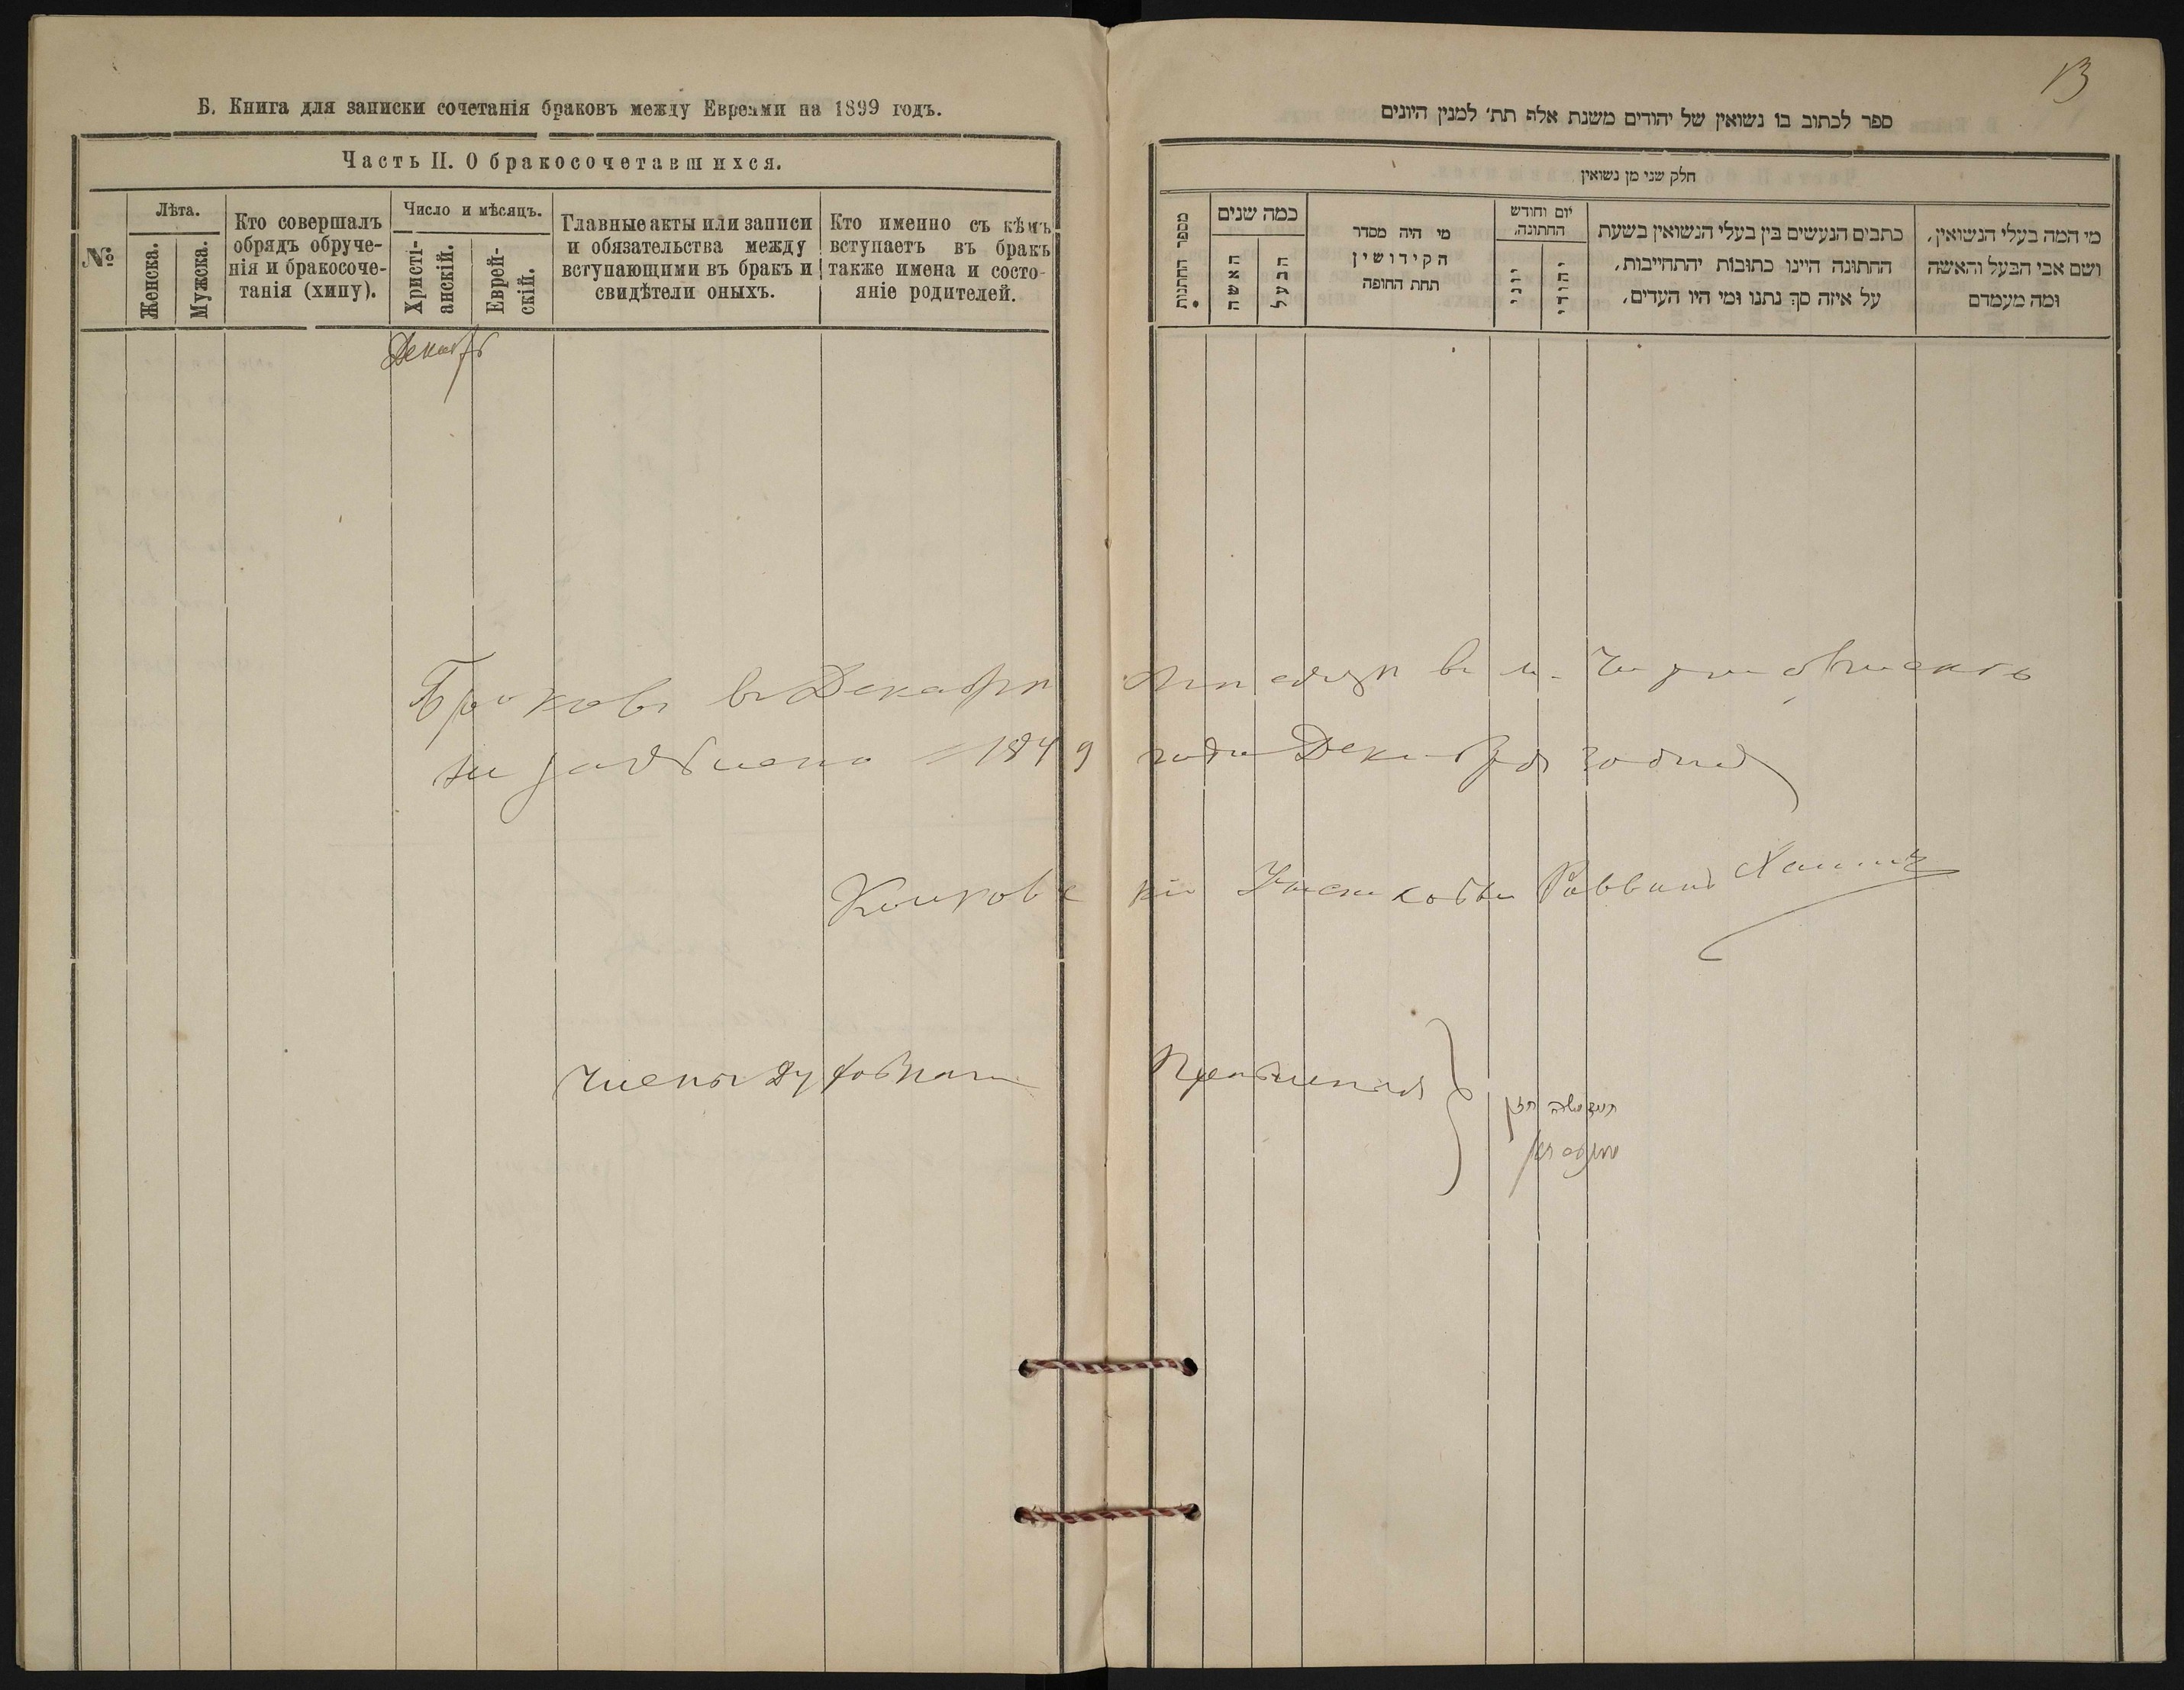 13
Б. Книга для записки сочетанія браковъ между Евреями на 1899 годъ.
Часть II. О бракосочетавшихся.
№
Лѣта.
Женска.
Мужска.
Кто совершалъ
обрядъ обруче-
нія и бракосоче-
танія (хипу).
Число и мѣсяцъ.
Христі-
анскій.
Еврей-
скій.
Главные акты или записи
и обязательства между
вступающими въ бракъ и
свидѣтели оныхъ.
Кто именно съ кѣмъ
вступаетъ въ бракъ
также имена и состо-
яніе родителей.
ספר לכתוב בו נשואין של יהודים משנת אלף תת׳ למנין היונים
חלק שני מן נשואין
מספר החתנות
כמה שנים
האשה
הבעל
מי היה מסדר
הקידושין
תחת החופה
יום וחודש
החתונה.
יוני
יהודי
כתבים הנעשים בין בעלי הנשואין בשעת
החתונה היינו כתובות יהתחייבות,
על איזה סך נתנו ומי היו העדים,
מי המה בעלי הנשואין,
ושם אבי הבעל והאשה
ומה מעמדם
Декабрь
Браковъ въ Декабрѣ мѣсяцѣ въ м.
не 1899 года Декабря дня
Раввинъ
Члены Духовнаго Правленія